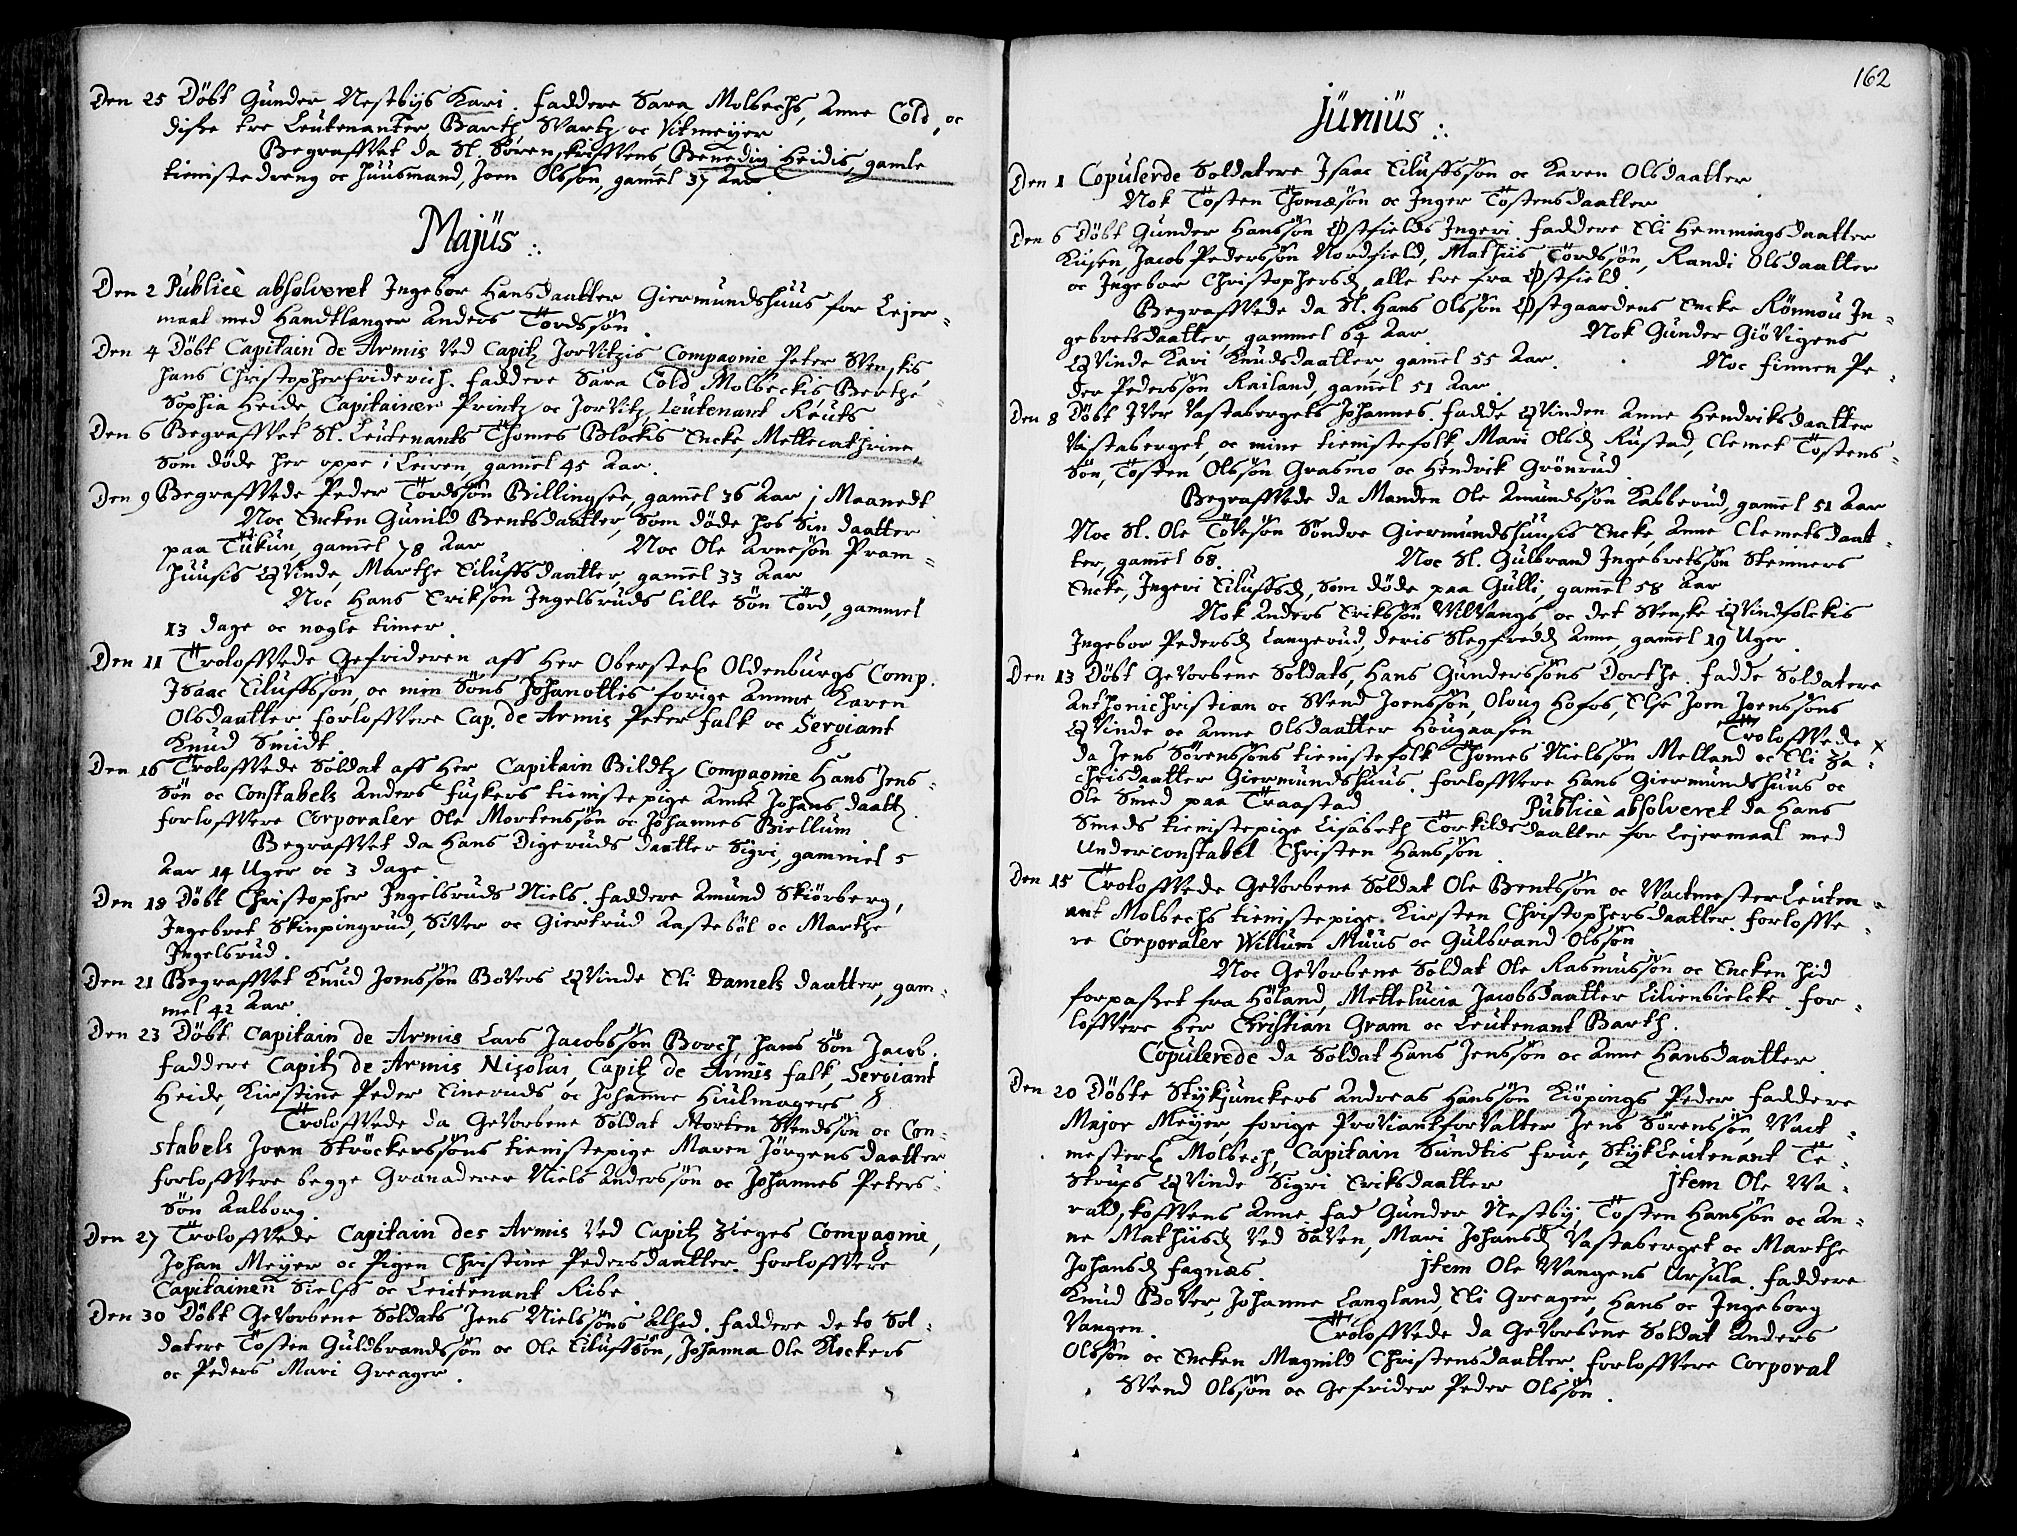 Den 25 Döbt Gunder Nestbÿs Kari. faddere Sara Molbechs, Anne Cold, oc
disse tre Leutenanter, Barth, Svartz oc Vitmeÿer
Begraffvet da Sl. Sören skriffvens Benedix Heidis, gamle
tienistedreng oc huusmand, Joen Olssön, gamel 37 Aar.
Majüs.
Den 2 Publicè absolveret Ingebor Hansdaatter Giermundshuus for Lejer-
maal med Handtlanger Anders Tördssön.
Den 4 Döbt Capitain de Armis ved Capitz JorVitzis Compagnie Peter Svenskis,
hans Christopherfriderich. faddere Sara Cold, Molbeckis Berthe-
Sophia Heide, Capitainer Printz oc JorVitz, Leutenant Reuts
Den 6 Begraffvet Sl. Leutenants Thomes Blockis Encke, Mettecathrine,
som döde her oppe i Leiren, gamel 45 Aar.
Den 9 Begraffvede Peder Tördssön Billingsee, gamel 36 Aar 1 Maanedt
Noc Encken Gunild Bentsdaatter, som döde hos sin daatter
paa Tukun, gamel 78 Aar Noc Ole Arnesön Pram-
huusis qvinde, Marthe Eiluffsdaatter, gamel 33 Aar
Noc Hans Eriksön Ingelsruds lille Sön Törd, gammel
13 dage oc nogle timer.
Den 11 Troloffvede Gefrideren aff Her Obersteℓ Oldenburgs Comp.
Isaac Eiluffssön, oc min Söns Johanottis forige Amme Karen
Olsdaatter. forloffvere Cap. de Armis Peter falk oc Sergiant
Knud Smidt
Den 16 Troloffvede Soldat aff Her Capitain Bildtz Compagnie Hans Jens-
sön oc Constabels Anders fuskers tienistepige Anne Johansdaatt.
forloffvere Corporaler Ole Mortenssön oc Johannes Biellum
Begraffvet da Hans Digeruds daatter Sigri, gammel 5
Aar 14 Uger oc 3 dage.
Den 18 Döbt Christopher Ingelsruds Niels. faddere Amund Skiörberg,
Ingebret Skinpingrud, Siver oc Giertrud Aasteböl oc Marthe
Ingelsrud.
Den 21 Begraffvet Knud Jonssön Bovers qvinde Eli Danielsdaatter, gam-
mel 42 Aar.
Den 23 Döbt Capitain de Armis Lars Jacobssön Borch, hans Sön Jacob.
faddere Capitz de Armis Nicolai, Capitz de Armis falk, Sergiant
Heide, Kirstine Peder Eineruds oc Johanne Hiulmagers
Troloffvede da Gevorbene Soldat Morten Svendssön oc Con-
stabels Joen Ströckerssöns tienistepige Maren Jörgensdaatter
forloffvere begge Granaderer Niels Anderssön oc Johannes Peters-
sön Aalborg.
Den 27 Troloffvede Capitain des Armis ved Capitz Zieges Compagnie,
Johan Meÿer oc Pigen Christine Pedersdaatter. forloffvere
Capitainen sielff oc Leutenant Ribe
Den 30 Döbt Gevorbene Soldats Jens Nielssöns Alhed. faddere de to Sol-
datere Tösten Guldbrandssön oc Ole Eiluffssön, Johanna Ole Klockers
oc Peders Mari Greager.
162
Junius.
Den 1 Copulerde Soldatere Isaac Eiluffssön oc Karen Olsdaatter
Nok Tösten Thomæsön oc Inger Töstensdaatter
Den 6 Döbt Gunder Hanssön Østfields Ingeri. faddere Eli Hemmingsdaatter
Kusen, Jacob Pederssön Nordfield, Mathiis Tördssön, Randi Olsdaatter
oc Ingebor Christophersd, alle tre fra Østfield.
Begraffvede da Sl. Hans Olssön Østgaardens Encke Rönnou In-
gebretsdaatter, gammel 64 Aar. Nok Gunder Giövigens
qvinde Kari Knudsdaatter, gamel 55 Aar. Noc finnen Pe-
der Pederssön Railand, gamel 51 Aar.
Den 8 Döbt Iver Vastabergets Johannes. fadde qvinden Anne Hendriksdaatter
Vastaberget, oc mine tienistefolk Mari Olsd Rustad, Clemet Töstens-
sön, Tösten Olssön Grasmo oc Hendrik Grönrud.
Begraffvede da Manden Ole Amundssön Kabberud, gamel 51 Aar
Noc Sl. Ole Tövesön Söndre Giermundshuusis Encke Anne Clemetsdaat-
ter, gamel 68. Noc Sl. Gulbrand Ingebretssön Steinners
Encke, Ingeri Eiluffsd, som döde paa Gulli, gamel 58 Aar
Nok Anders Erikssön Vilvangs oc det svenske qvindfolckis
Ingebor Pedersd Langerud, deris Slegfredd Anne, gamel 19 Uger.
Den 13 Döbt Gevorbene Soldats, Hans Gunderssöns Dorthe. fadde Soldatere
Anthonichristian oc Svend Joenssön, Oloug Hofos, Else Joen Joenssöns
qvinde oc Anne Olsdaatter Hougaasen Troloffvede
da Jens Sörenssöns tienistefolk Thomes Nielssön Melland oc Eli Za-
chrisdaatter Giermundshuus. forloffvere Hans Giermundshuus oc
Ole Smed paa Traastad Publicè absolveret da Hans
Smeds tienistepige Lisabeth Törkildsdaatter for Lejermaal med
Underconstabel Christen Hanssön.
Den 15 Troloffvede Gevorbene Soldat Ole Bentssön oc Wactmester Leuten-
ant Molbechs tienistepige. Kirsten Christophersdaatter. forloffve-
re Corporaler Willum Muus oc Gulbrand Olssön
Noc Gevorbene Soldat Ole Rasmussön oc Encken hid
forpasset fra Höland, Mettelucia Jacobsdaatter Lilienbielcke. for-
loffvere Her Christian Gram oc Leutenant Barth.
Copulerede da Soldat Hans Jenssön oc Anne Hansdaatter.
Den 20 Döbte Stÿkjunckers Andreas Hanssön Kiöpings Peder. faddere
Major Meÿer, forige Proviantforvalter Jens Sörenssön, Wact-
mesterℓ Molbech, Capitain Sundtis frue, StÿkLeutenant Te-
strups qvinde Sigri Eriksdaatter Item Ole Va-
rald, koffvens Anne. fad Gunder Nestbÿ, Tösten Hanssön oc An-
ne Mathiisd ved Saven, Mari Johansd Vastaberget oc Marthe
Johansd fagnæs. Item Ole Wangens Ursula. faddere
Knud Bover, Johanne Langland, Eli Greager, Hans oc Ingeborg
Vangen. Troloffvede da Gevorbene Soldat Anders
Olssön oc Encken Magnild Christensdaatter. forloffvere Corporal
Svend Olssön oc Gefrider Peder Olssön.